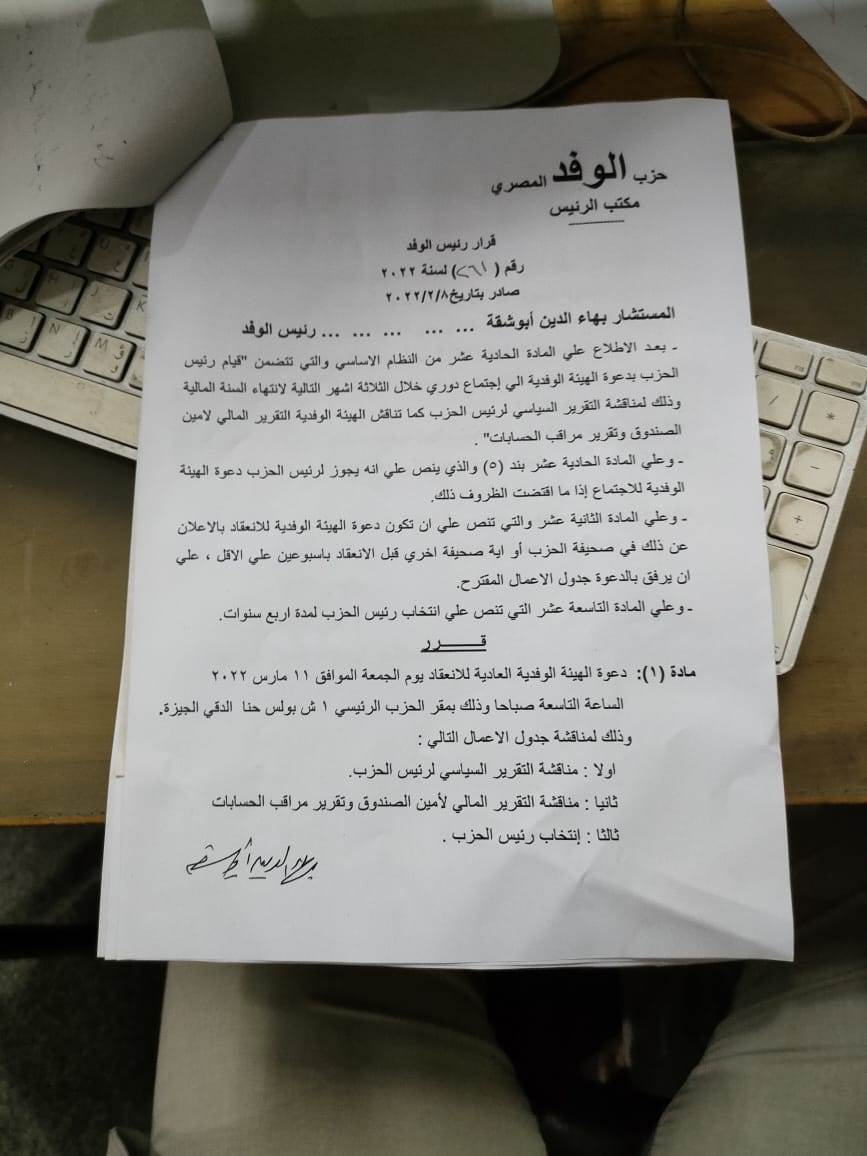 حزب الوفد المصري
مكتب الرئيس
قرار رئيس الوفد
رقم (٢٦١) لسنة ٢٠٢٢
صادر بتاريخ ٢٠٢٢/٢/٨
المستشار بهاء الدين أبوشقة ... ... ... ... ... رئيس الوفد
- بعد الاطلاع علي المادة الحادية عشر من النظام الاساسي والتي تتضمن "قيام رئيس
الحزب بدعوة الهيئة الوفدية الي إجتماع دوري خلال الثلاثة اشهر التالية لانتهاء السنة المالية
وذلك لمناقشة التقرير السياسي لرئيس الحزب كما تناقش الهيئة الوفدية التقرير المالي لامين
الصندوق وتقرير مراقب الحسابات" .
- وعلي المادة الحادية عشر بند (٥) والذي ينص علي انه يجوز لرئيس الحزب دعوة الهيئة
الوفدية للاجتماع إذا ما اقتضت الظروف ذلك.
- وعلي المادة الثانية عشر والتي تنص علي ان تكون دعوة الهيئة الوفدية للانعقاد بالاعلان
عن ذلك في صحيفة الحزب أو اية صحيفة اخري قبل الانعقاد باسبوعين علي الاقل ، علي
ان يرفق بالدعوة جدول الاعمال المقترح.
- وعلي المادة التاسعة عشر التي تنص علي انتخاب رئيس الحزب لمدة اربع سنوات.
قـــــرر
مادة (١): دعوة الهيئة الوفدية العادية للانعقاد يوم الجمعة الموافق ١١ مارس ٢٠٢٢
الساعة التاسعة صباحا وذلك بمقر الحزب الرئيسي ١ ش بولس حنا الدقي الجيزة.
وذلك لمناقشة جدول الاعمال التالي :
اولا : مناقشة التقرير السياسي لرئيس الحزب.
ثانيا : مناقشة التقرير المالي لأمين الصندوق وتقرير مراقب الحسابات
ثالثا : إنتخاب رئيس الحزب .
بهاء الدين أبو شقة